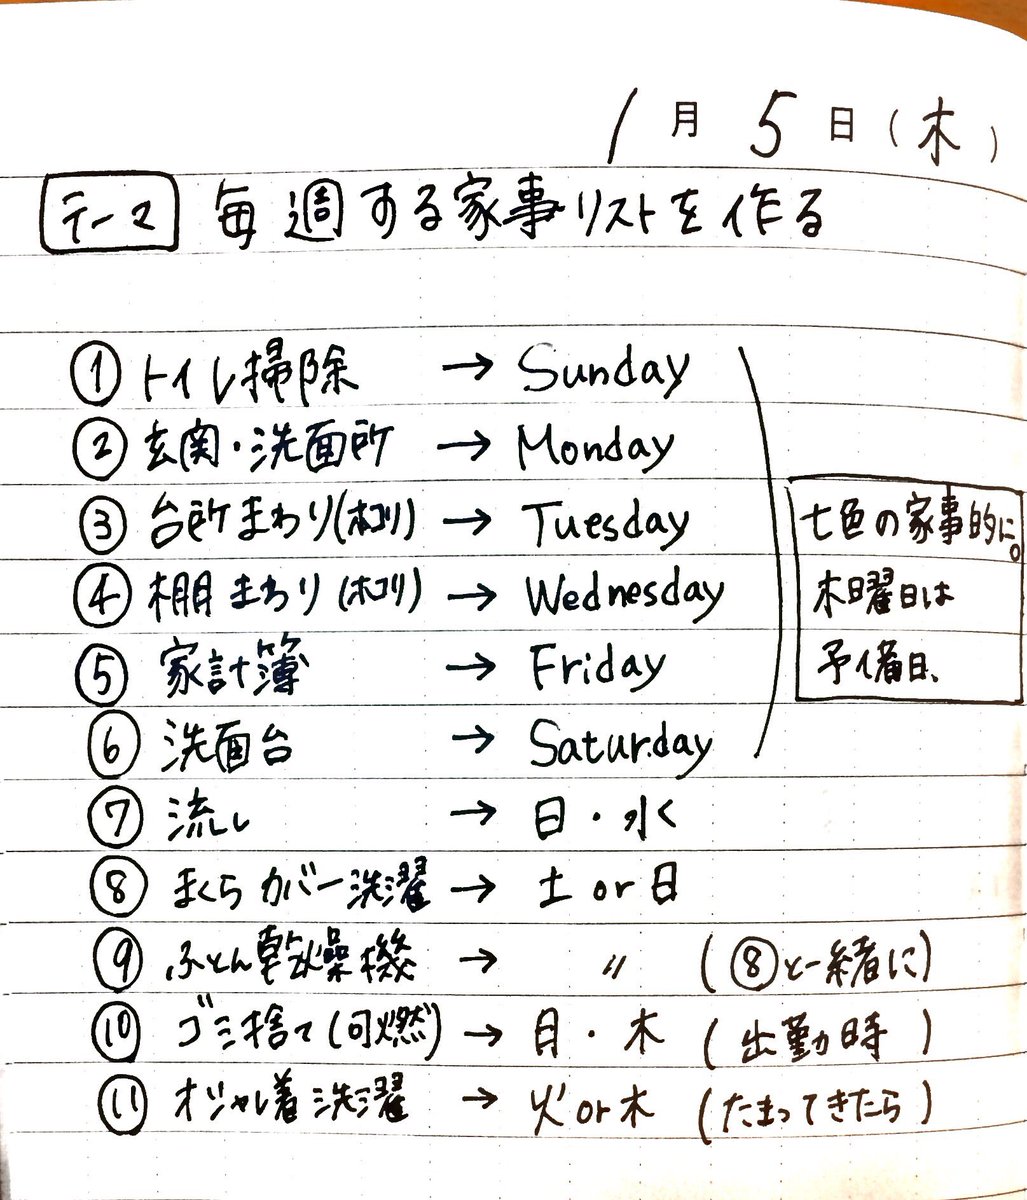 1月5日(木)
テーマ 毎週する家事リストを作る
① トイレ掃除 → Sunday
② 玄関・洗面所 → Monday
③ 台所まわり(ホコリ) → Tuesday
④ 棚まわり(ホコリ) → Wednesday
⑤ 家計簿 → Friday
⑥ 洗面台 → Saturday
⑦ 流し → 日・水
⑧ まくらカバー洗濯 → 土or日
⑨ ふとん乾燥機 → 〃 (⑧と一緒に)
⑩ ゴミ捨て(可燃) → 月・木 (出勤時)
⑪ オシャレ着洗濯 → 火or木 (たまってきたら)
七色の家事的に。
木曜日は
予備日、